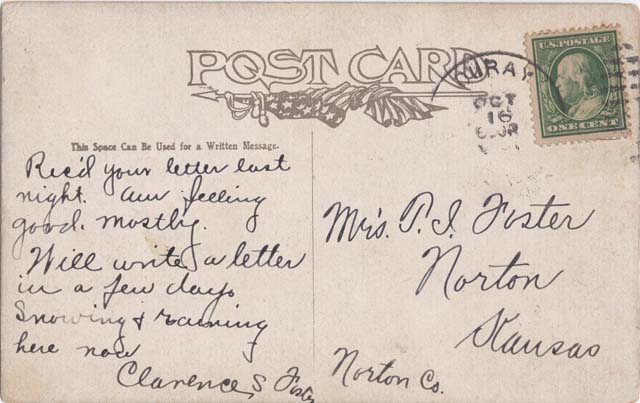 POST CARD
This Space Can Be Used for a Written Message.
Rec'd your letter last
night. am feeling
good. mostly.
Will write a letter
in a few days
Snowing & raining
here now
Clarence S Foster
OURAY
OCT
16
U.S. POSTAGE
ONE CENT
Mrs. P. I. Foster
Norton
Kansas
Norton Co.